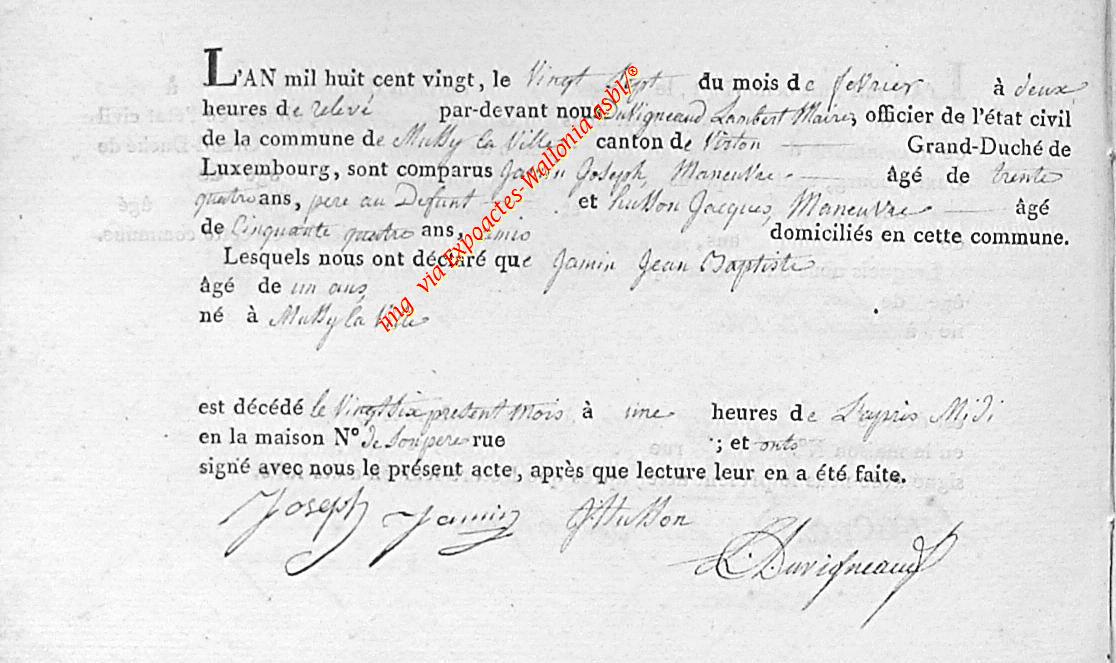 L'AN mil huit cent vingt, le Vingt Sept du mois de fevrier à deux
heures de relevé par-devant nous Duvigneaud Lambert Maire, officier de l'état civil
de la commune de Mussy la Ville canton de Virton Grand-Duché de
Luxembourg, sont comparus Jamin Joseph, Maneuvre âgé de trente
quatre ans, pere au Defunt et husson Jacques, Maneuvre âgé
de Cinquante quatre ans, amis domiciliés en cette commune.
Lesquels nous ont déclaré que Jamin Jean Baptiste
âgé de un ans
né à Mussy la Ville
est décédé le Vingt Six present Mois à une heures de L'après Midi
en la maison N° de Son pere rue ; et onts
signé avec nous le présent acte, après que lecture leur en a été faite.
Joseph Jamin JHusson
L. Duvigneaud
img via Expoactes-Wallonia asbl/®